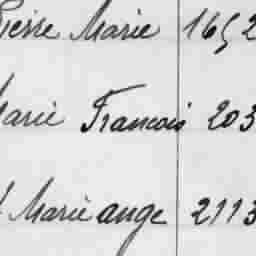 Pierre Marie 1652
Marie Francois 203
Marie ange 2113